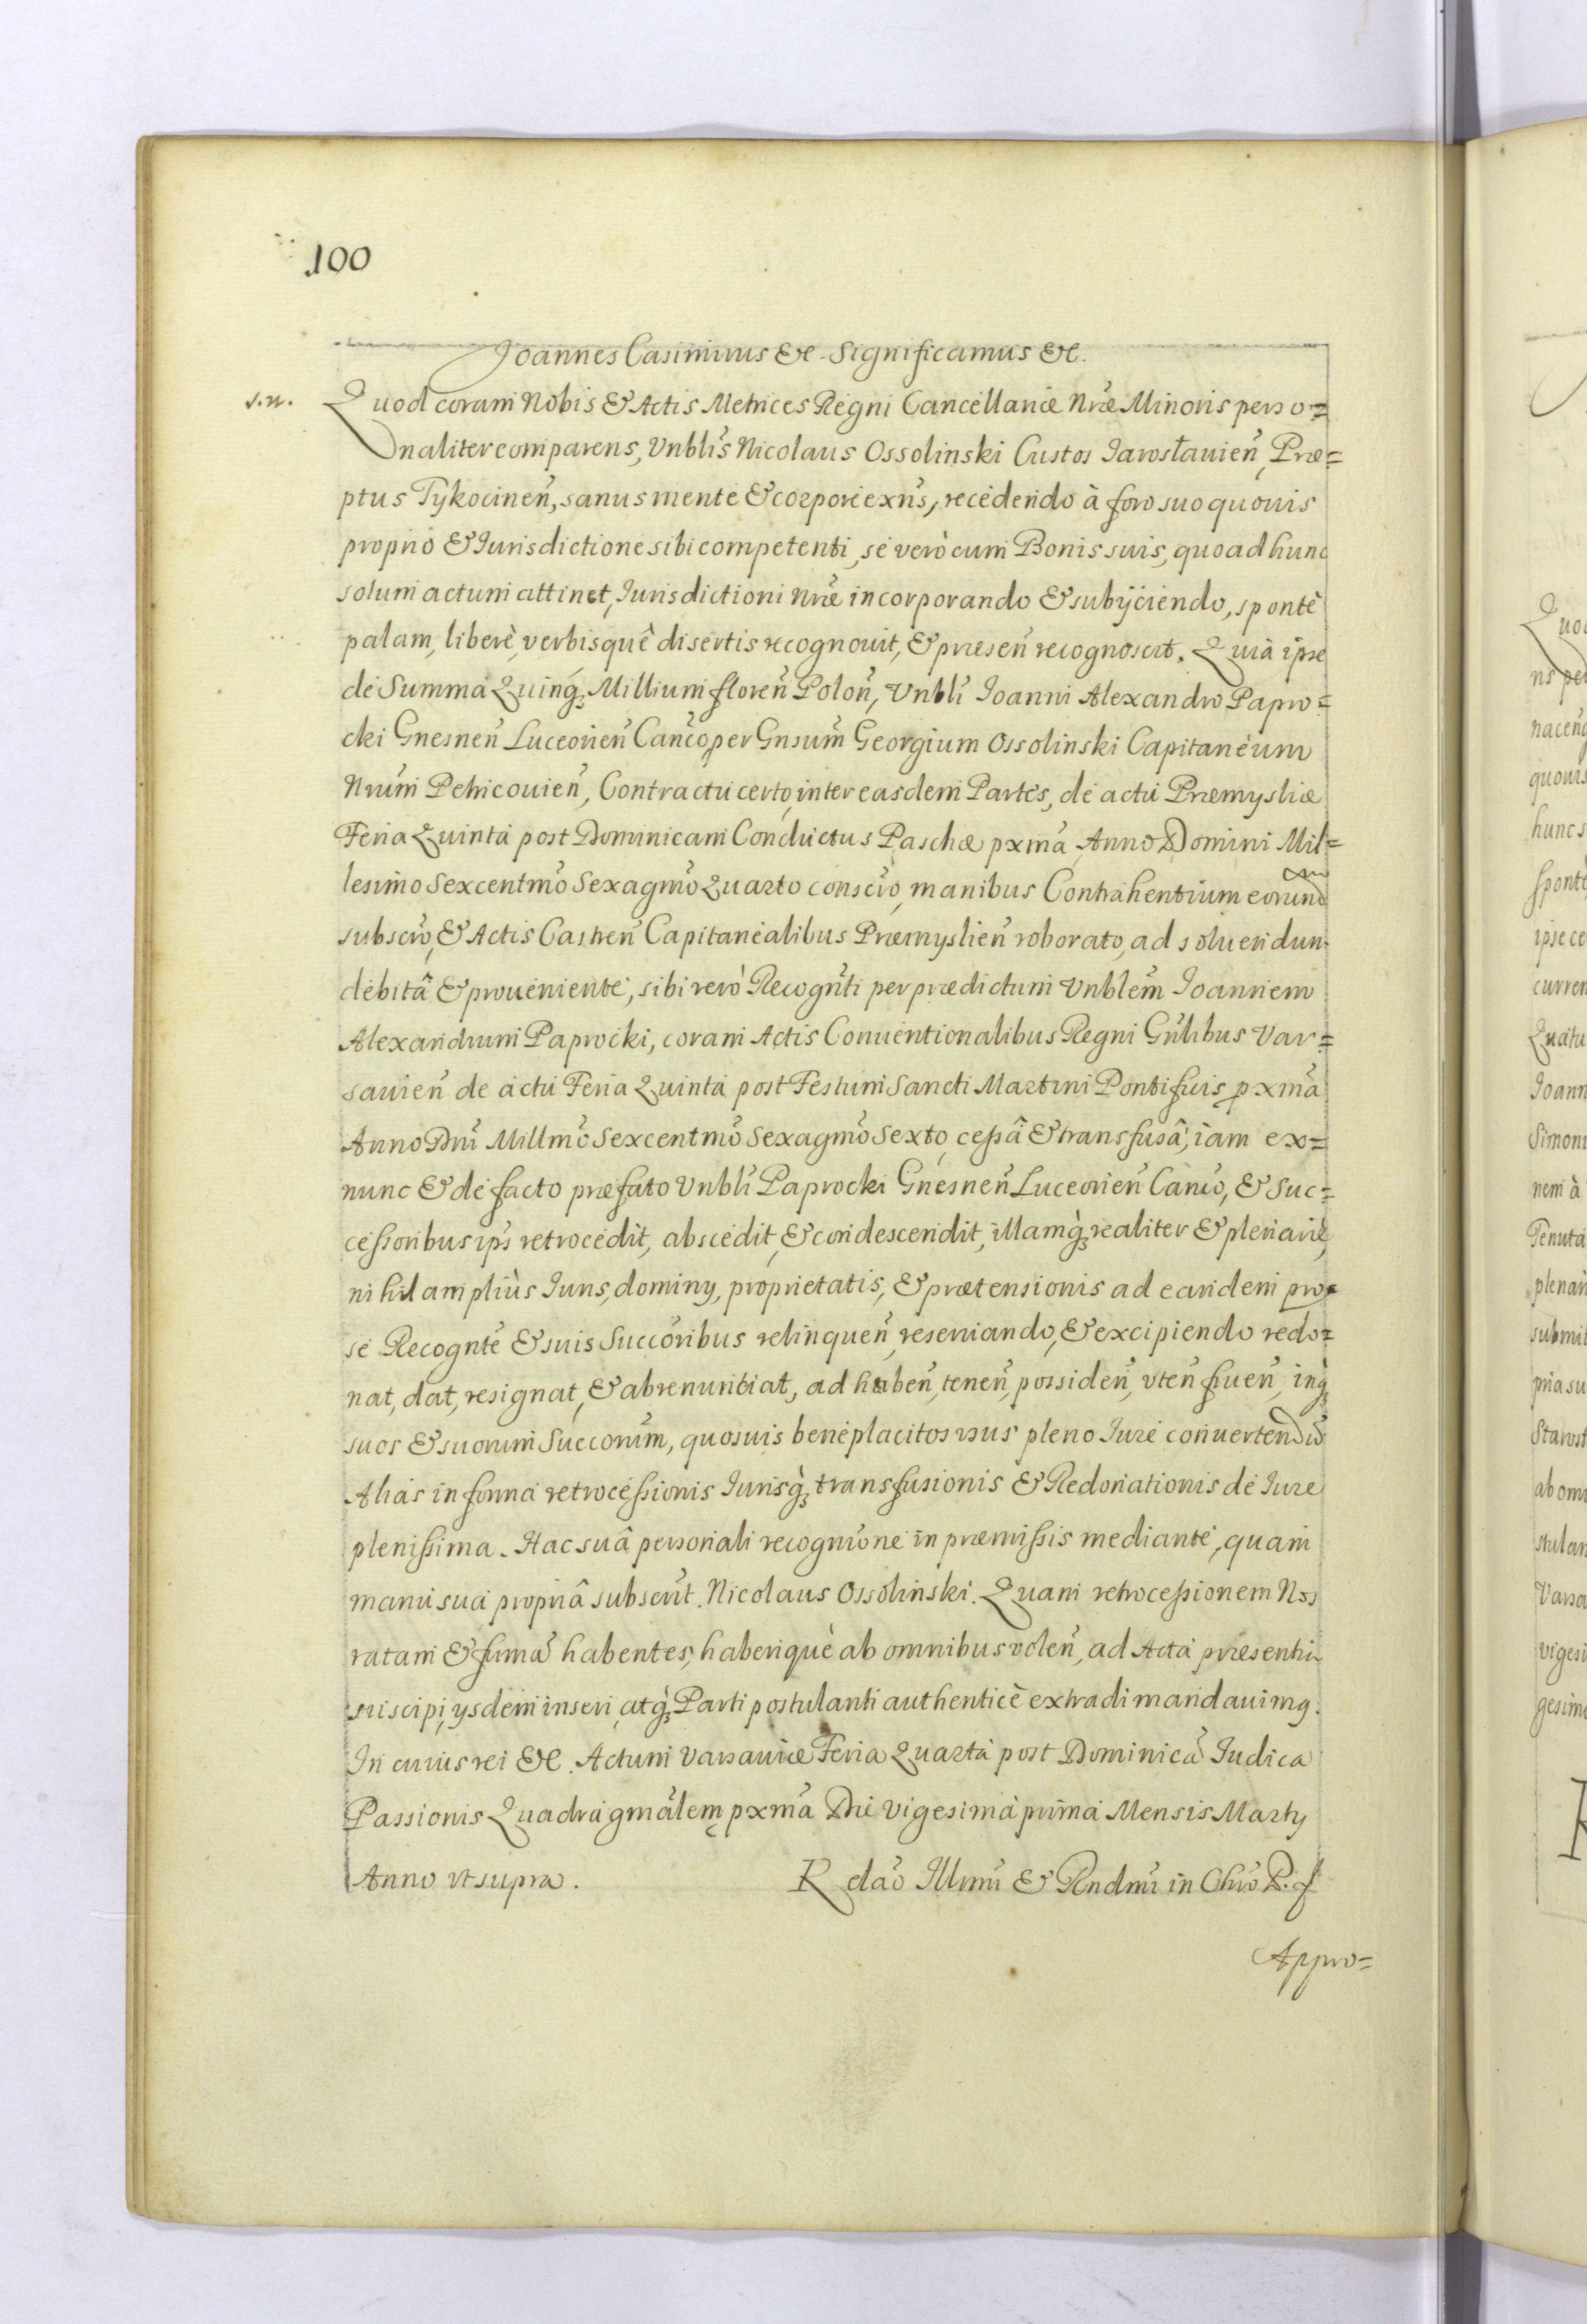 100
Joannes Casimirus &c. Significamus &c.
s.n.
Quod coram Nobis & Actis Metrices Regni Cancellariæ Nræ Minoris perso=
naliter comparens, Vnblis Nicolaus Ossolinski Custos Jarosłauien, Præ=
ptus Tykocinen, sanus mente & corpore exns, recedendo à foro suo quouis
proprio & Jurisdictione sibi competenti, se verò cum Bonis suis, quoad hunc
solum actum attinet, Jurisdictioni Nræ incorporando & subijciendo, spontè
palam, liberè, verbisquè disertis recognouit, & præsen recognoscit. Quia ipse
de Summa Quinq, Millium floren Polon, Vnbli Joanni Alexandro Papro=
cki Gnesnen Luceorien Canco, per Gnsum Georgium Ossolinski Capitaneum
Nrum Petricouien, Contractu certo, inter easdem Partes, de actu Præmysliæ
Feria Quinta post Dominicam Conductus Paschæ pxma, Anno Domini Mil=
lesimo Sexcentmo Sexagmo Quarto conscro, manibus Contrahentium eorund
subscro, & Actis Castren Capitanealibus Præmyslien roborato, ad soluendum
debitâ & proueniente, sibi verò Recognti per prædictum Vnblem Joannem
Alexandrum Paprocki, coram Actis Conuentionalibus Regni Gnlibus Var=
sauien de actu Feria Quinta post Festum Sancti Martini Pontificis pxma
Anno Dni Millmo Sexcentmo Sexagmo Sexto, cessâ & transfusâ, iam ex=
nunc & de facto præfato Vnbli Paprocki Gnesnen Luceorien Canco, & Suc=
cessoribus ips retrocedit, abscedit, & condescendit, illamq, realiter & plenariè,
nihil ampliùs Juris, dominy, proprietatis, & prætensionis ad eandem pro
se Recognte & suis Succoribus relinquen, reseruando, & excipiendo redo=
nat, dat, resignat, & abrenuntiat, ad haben, tenen, possiden, vten fruen, inq,
suos & suorum Succorum, quosuis beneplacitos vsus pleno Jure conuertend
Alias in forma retrocessionis Jurisq, transfusionis & Redonationis de Jure
plenissima. Hac suâ personali recognione in præmissis mediante, quam
manu sua propriâ subscrit. Nicolaus Ossolinski. Quam retrocessionem Nos
ratam & firma habentes, haberiquè ab omnibus volen, ad Acta præsentia
suscipi, ysdem inseri, atq, Parti postulanti authenticè extradi mandauimg.
In cuius rei &c. Actum Varsauiæ Feria Quarta post Dominica Judica
Passionis Quadragmalem pxma Die Vigesima prima Mensis Marty
Anno vt supra. Relao Illmi & Rndmi in Chro P. f
Appro=